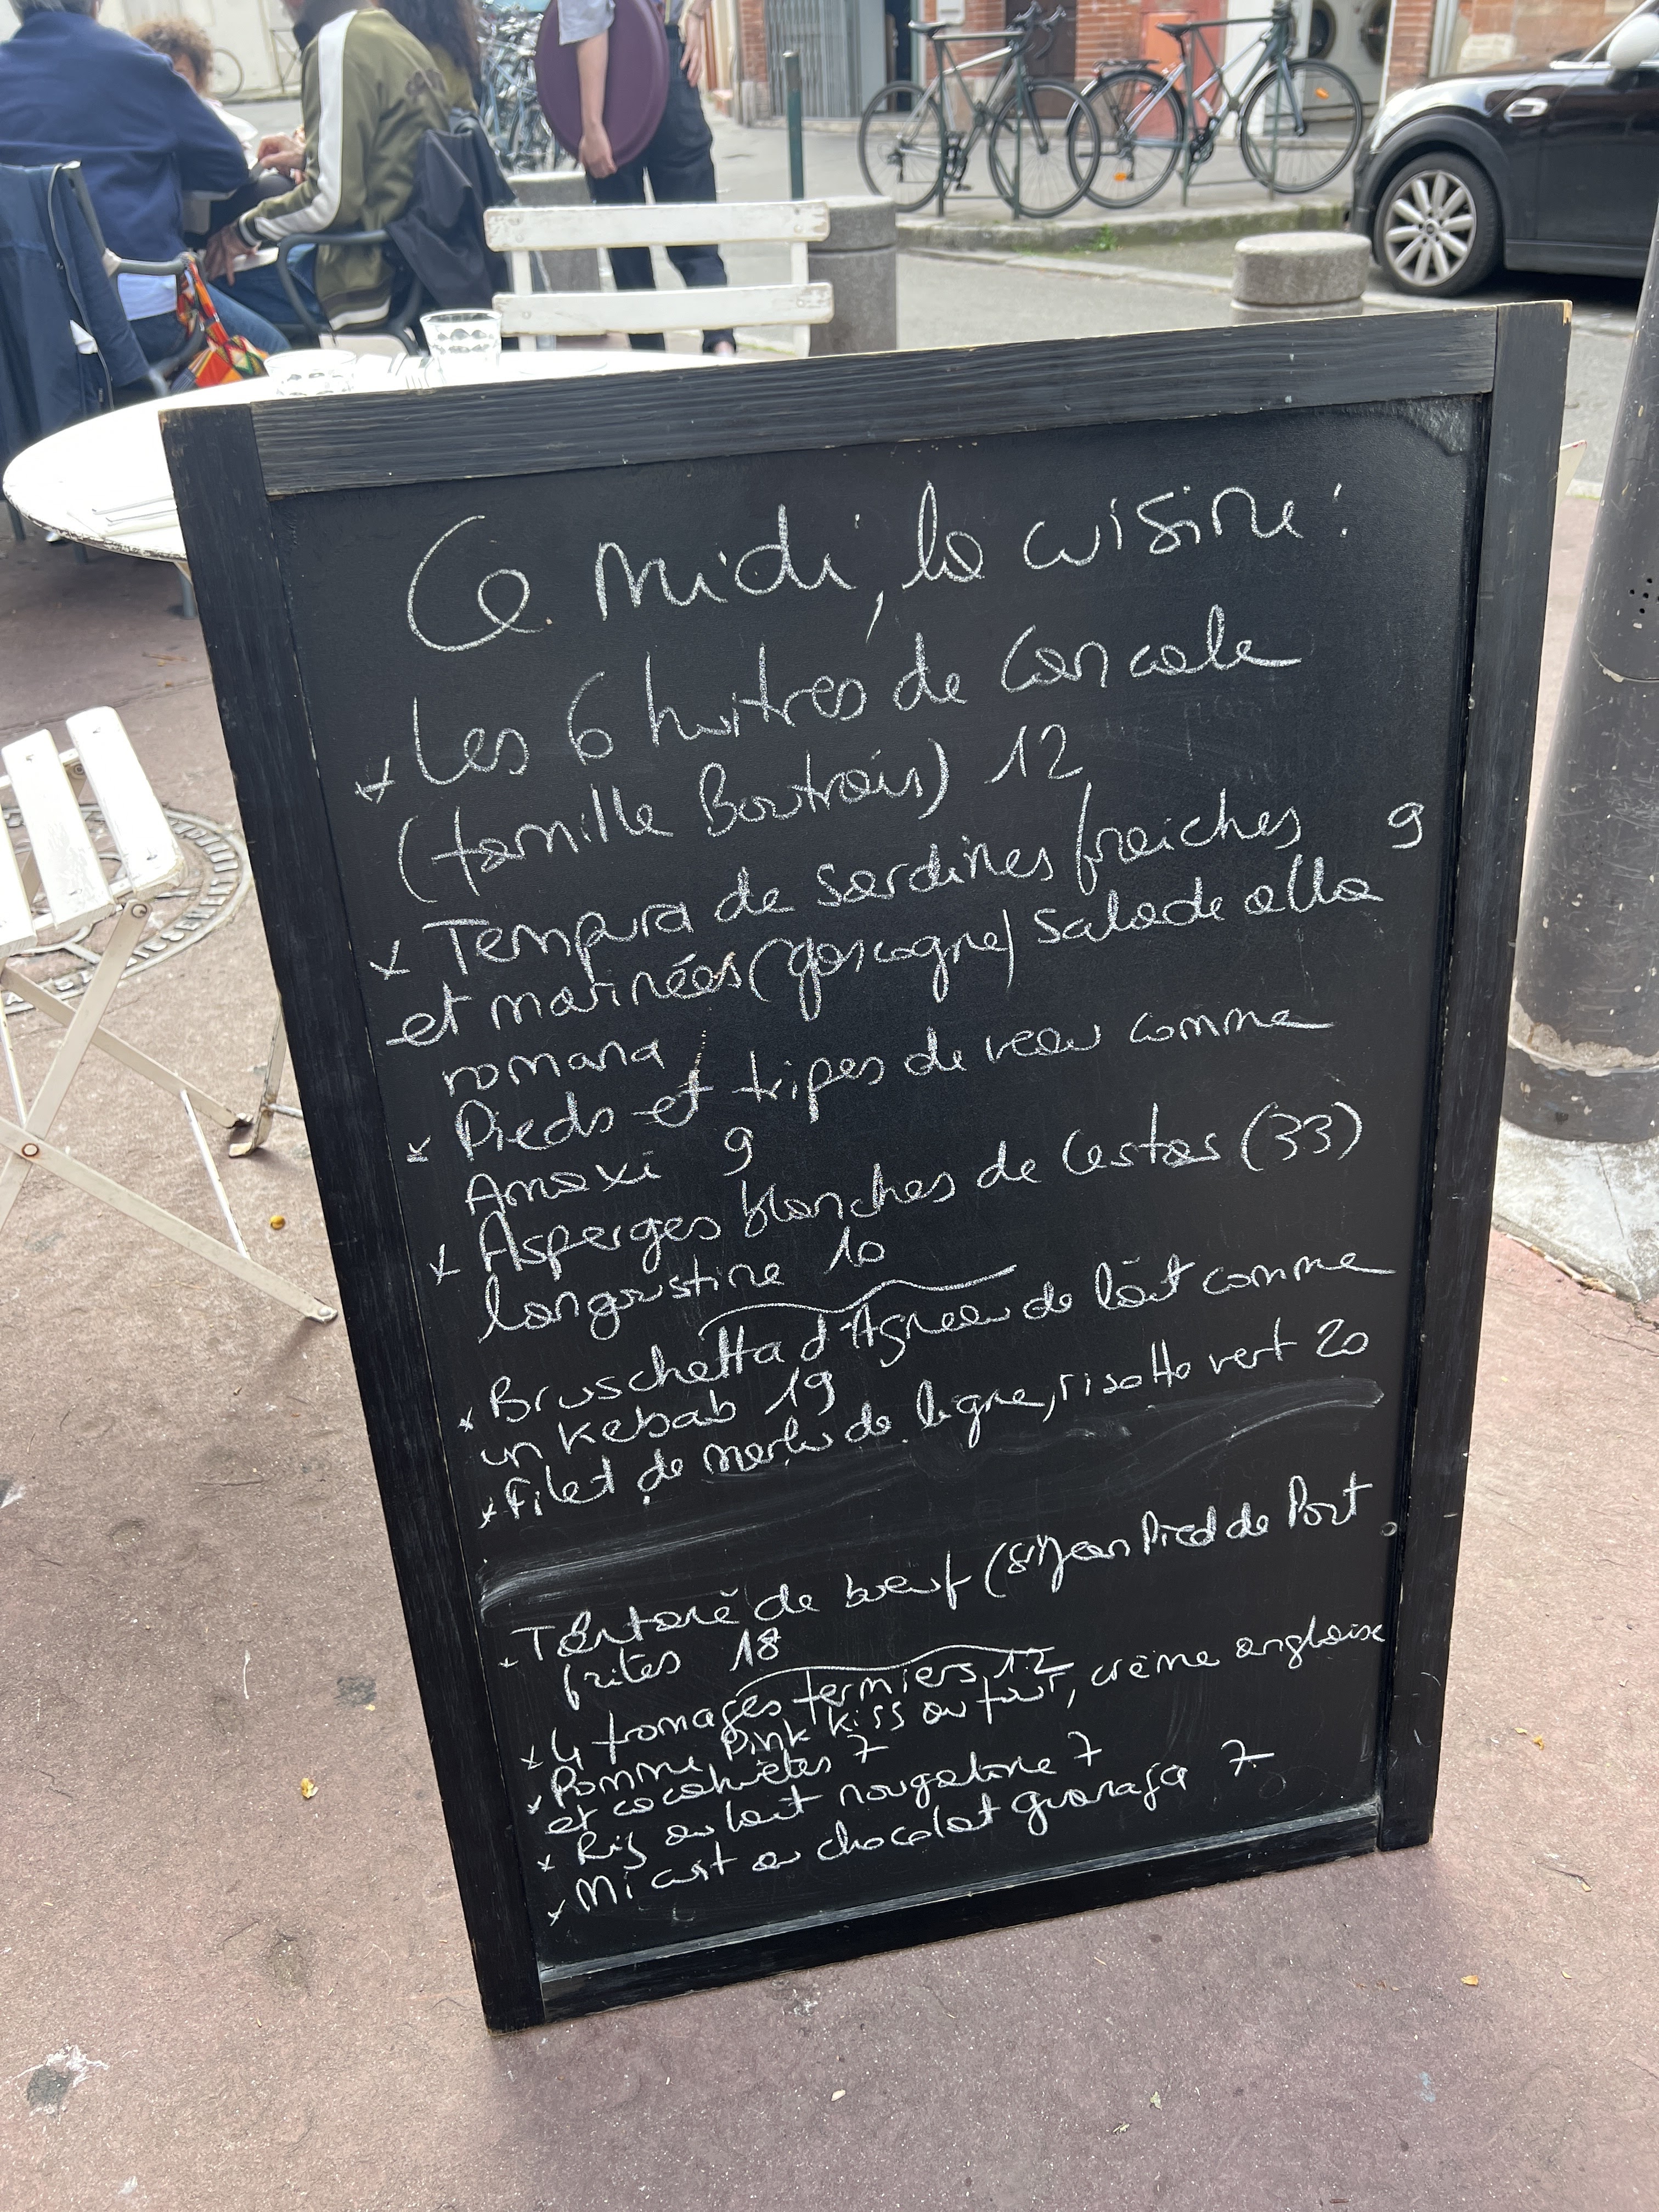 Ce midi, la cuisine :
* Les 6 huîtres de Cancale
(famille Boutrois) 12
* Tempura de sardines fraiches 9
et marinées (gascogne) salade alla
romana
* Pieds et tripes de veau comme
Amaxi 9
* Asperges blanches de Cestas (33)
langoustine 10
* Bruschetta d'Agneau de lait comme
un Kebab 19
* Filet de merlu de ligne, risotto vert 20
- Tartare de bœuf (St Jean Pied de Port
frites 18
* 4 fromages fermiers 12
* Pomme Pink Kiss au four, crème anglaise
et cacahuètes 7
* Riz au lait nougatine 7
* Mi cuit au chocolat guanaja 7